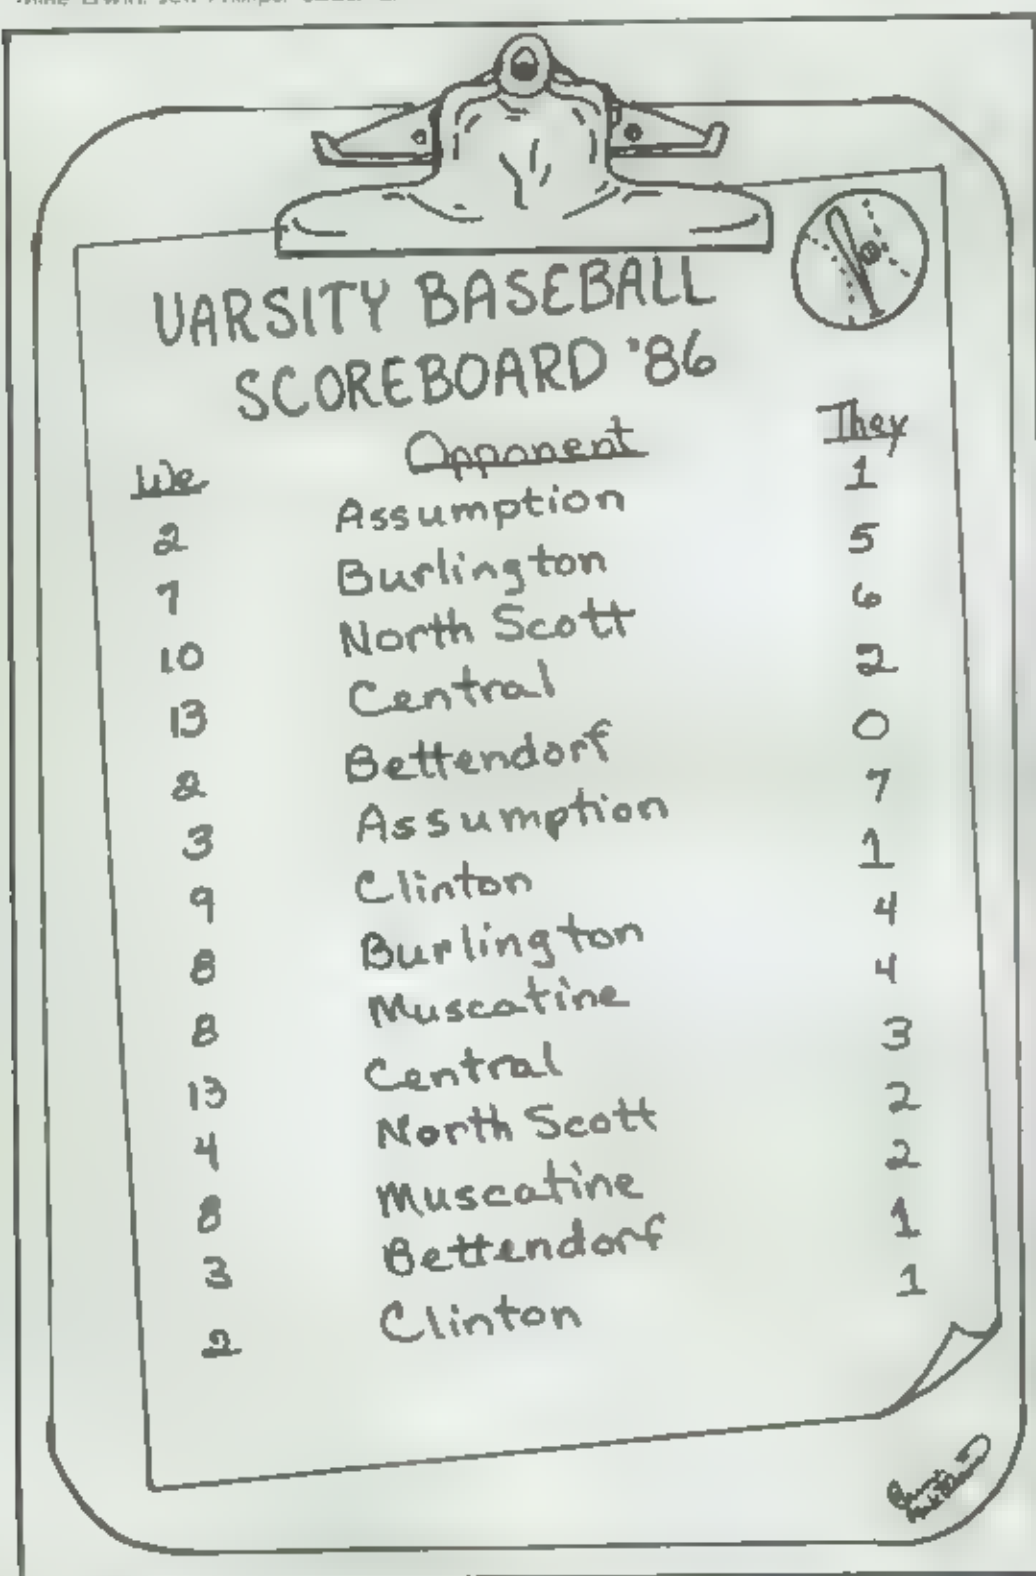 VARSITY BASEBALL
SCOREBOARD '86
We Opponent They
2 Assumption 1
7 Burlington 5
10 North Scott 6
13 Central 2
2 Bettendorf 0
3 Assumption 7
9 Clinton 1
8 Burlington 4
8 Muscatine 4
13 Central 3
4 North Scott 2
8 Muscatine 2
3 Bettendorf 1
2 Clinton 1